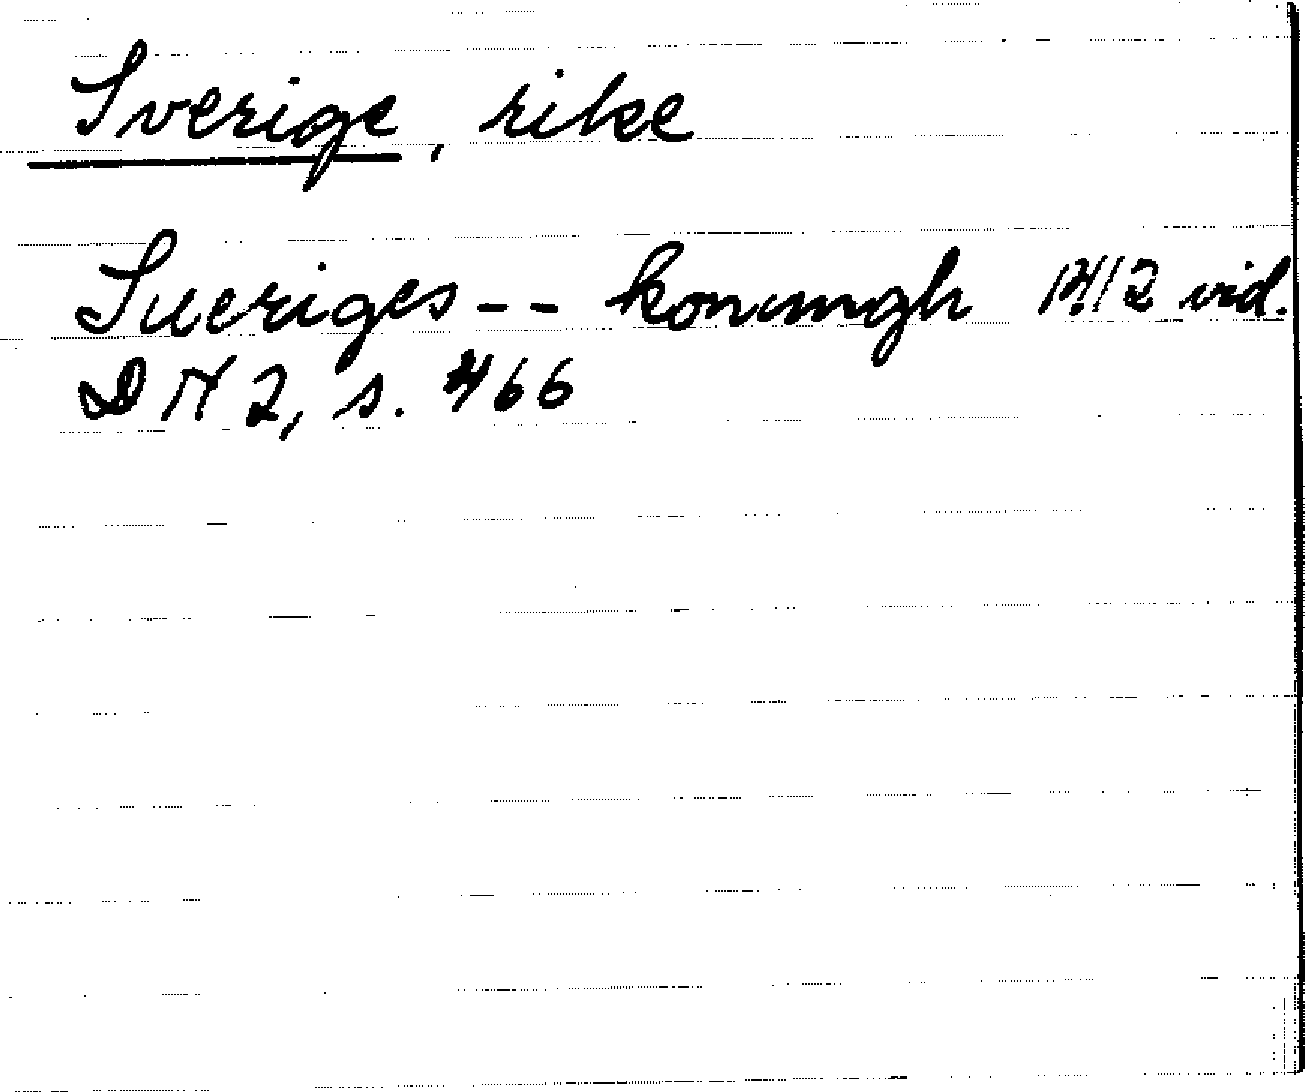 Sverige, rike
Sueriges -- konungh 1412 vid.
DN 2, s. 466